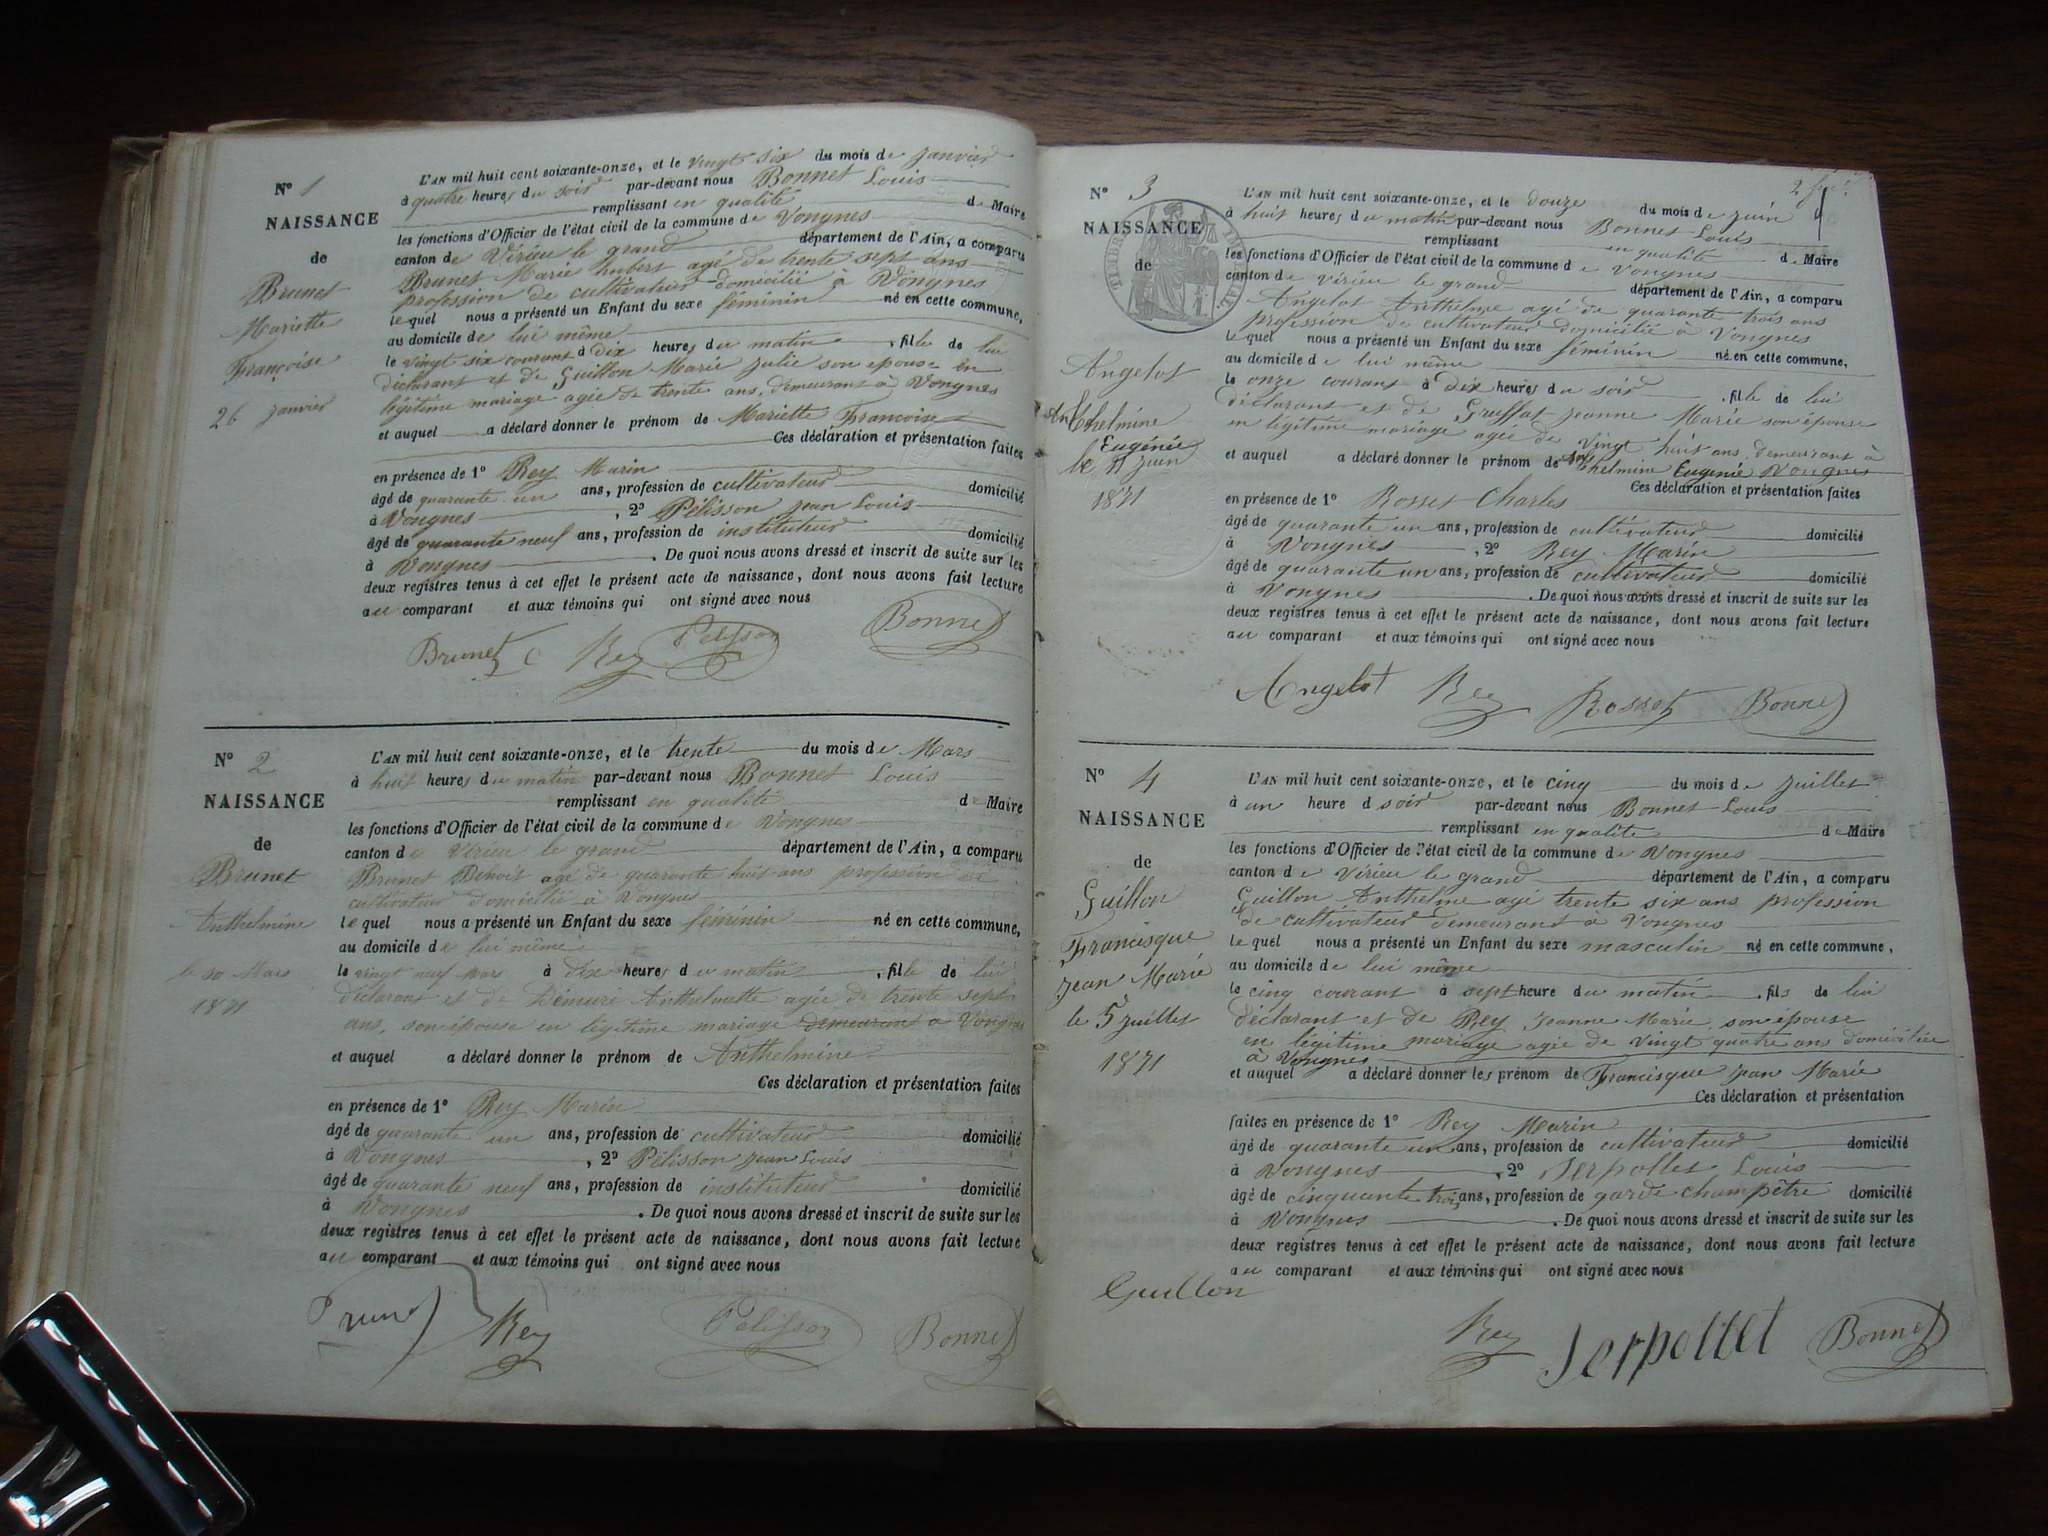 N° 1
NAISSANCE
de
Brunet
Mariette
Françoise
26 janvier
L'AN mil huit cent soixante-onze, et le vingt six du mois de janvier
à quatre heures du soir par-devant nous Bonnet Louis
remplissant en qualité de Maire
les fonctions d'Officier de l'état civil de la commune de Vongnes
canton de Virieu le grand département de l'Ain, a comparu
Brunet Marie hubert agé de trente sept ans
profession de cultivateur domicilié à Vongnes
lequel nous a présenté un Enfant du sexe féminin né en cette commune,
au domicile de lui même
le vingt six courant à dix heures du matin, fille de lui
déclarant et de Guillon Marie Julie son épouse en
légitime mariage agée de trente ans, demeurant à Vongnes
et auquel a déclaré donner le prénom de Mariette Françoise
Ces déclaration et présentation faites
en présence de 1° Rey Marin
âgé de quarante un ans, profession de cultivateur domicilié
à Vongnes, 2° Pélisson jean Louis
âgé de quarante neuf ans, profession de instituteur domicilié
à Vongnes. De quoi nous avons dressé et inscrit de suite sur les
deux registres tenus à cet effet le présent acte de naissance, dont nous avons fait lecture
au comparant et aux témoins qui ont signé avec nous
Brunet Rey Pélisson Bonnet
N° 2
NAISSANCE
de
Brunet
Anthelmine
le 30 Mars
1871
L'AN mil huit cent soixante-onze, et le trente du mois de Mars
à huit heures du matin par-devant nous Bonnet Louis
remplissant en qualité de Maire
les fonctions d'Officier de l'état civil de la commune de Vongnes
canton de Virieu le grand département de l'Ain, a comparu
Brunet Benoit agé de quarante huit ans profession de
cultivateur domicilié à Vongnes
lequel nous a présenté un Enfant du sexe féminin né en cette commune,
au domicile de lui même
le vingt neuf mars à dix heures du matin, fille de lui
déclarant et de Anthelmette agée de trente sept
ans, son épouse en légitime mariage demeurant à Vongnes
et auquel a déclaré donner le prénom de Anthelmine
Ces déclaration et présentation faites
en présence de 1° Rey Marin
âgé de quarante un ans, profession de cultivateur domicilié
à Vongnes, 2° Pélisson jean Louis
âgé de quarante neuf ans, profession de instituteur domicilié
à Vongnes. De quoi nous avons dressé et inscrit de suite sur les
deux registres tenus à cet effet le présent acte de naissance, dont nous avons fait lecture
au comparant et aux témoins qui ont signé avec nous
Brunet Rey Pélisson Bonnet
N° 3
NAISSANCE
de
Angelot
Anthelmine
Eugénie
le 11 juin
1871
L'AN mil huit cent soixante-onze, et le douze du mois de juin
à huit heures du matin par-devant nous Bonnet Louis
remplissant en qualité de Maire
les fonctions d'Officier de l'état civil de la commune de Vongnes
canton de Virieu le grand département de l'Ain, a comparu
Angelot Anthelme agé de quarante trois ans
profession de cultivateur domicilié à Vongnes
lequel nous a présenté un Enfant du sexe féminin né en cette commune,
au domicile de lui même
le onze courant à dix heures du soir, fille de lui
déclarant et de Gruffat jeanne Marie son épouse
en légitime mariage agée de vingt huit ans, demeurant à
et auquel a déclaré donner le prénom de Anthelmine Eugénie Vongnes
Ces déclaration et présentation faites
en présence de 1° Rosset Charles
âgé de quarante un ans, profession de cultivateur domicilié
à Vongnes, 2° Rey Marin
âgé de quarante un ans, profession de cultivateur domicilié
à Vongnes. De quoi nous avons dressé et inscrit de suite sur les
deux registres tenus à cet effet le présent acte de naissance, dont nous avons fait lecture
au comparant et aux témoins qui ont signé avec nous
Angelot Rey Rosset Bonnet
N° 4
NAISSANCE
de
Guillon
Francisque
jean Marie
le 5 juillet
1871
L'AN mil huit cent soixante-onze, et le cinq du mois de juillet
à un heure d soir par-devant nous Bonnet Louis
remplissant en qualité de Maire
les fonctions d'Officier de l'état civil de la commune de Vongnes
canton de Virieu le grand département de l'Ain, a comparu
Guillon Anthelme agé trente six ans profession
de cultivateur demeurant à Vongnes
lequel nous a présenté un Enfant du sexe masculin né en cette commune,
au domicile de lui même
le cinq courant à sept heure du matin, fils de lui
déclarant et de Rey Jeanne Marie son épouse
en légitime mariage agée de vingt quatre ans domiciliée
à Vongnes
et auquel a déclaré donner les prénom de Francisque jean Marie
Ces déclaration et présentation
faites en présence de 1° Rey Marin
âgé de quarante un ans, profession de cultivateur domicilié
à Vongnes, 2° Serpollet Louis
âgé de cinquante trois ans, profession de garde champêtre domicilié
à Vongnes. De quoi nous avons dressé et inscrit de suite sur les
deux registres tenus à cet effet le présent acte de naissance, dont nous avons fait lecture
au comparant et aux témoins qui ont signé avec nous
Guillon
Rey Serpollet Bonnet